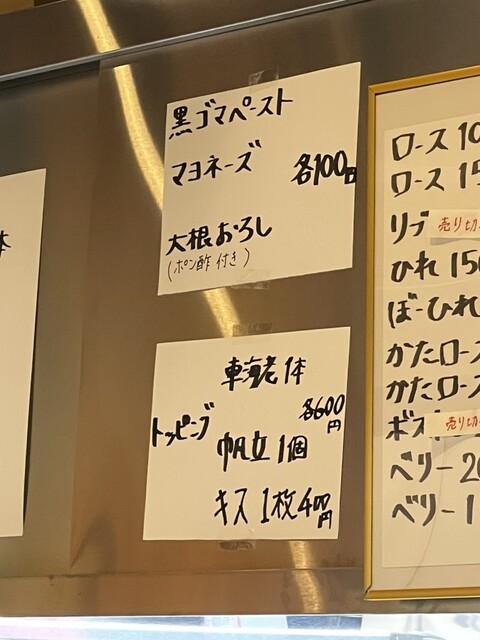 体
黒ゴマペースト
マヨネーズ 各100円
大根おろし
(ポン酢付き)
トッピング
車海老1体
各600円
帆立1個
キス1枚400円
ロース
ロース
リブ 売り切
ひれ
ぼーひれ
かたロース
かたロース
売り切
ベリー
ベリー